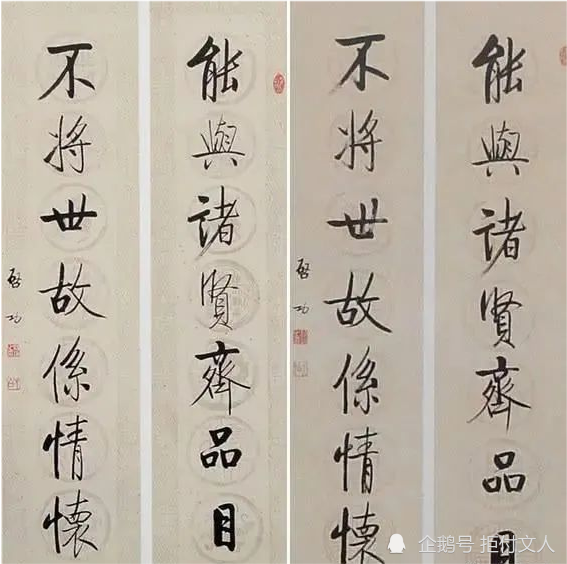 能與諸賢齊品目
不將世故係情懷
啓功
能與諸賢齊品目
不將世故係情懷
啓功
企鹅号 拒付文人